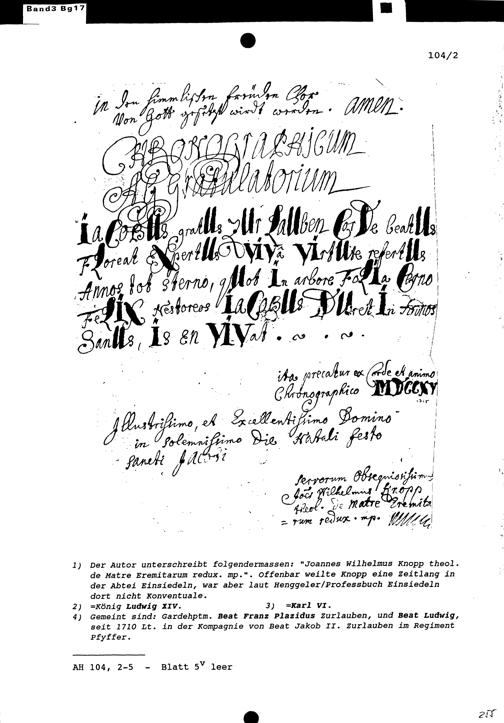 Band3 Bg17
104/2
in den himmlischen freüden Chor
Von Gott gesetzt wirdt werden. amen.
CHRONOGRAPHICUM
AGGratulatorium
IaCobUs gratUs
FLoreat EXpertUs VIVâ VIrtUte refertUs
Annos tot sterno, qUot In arbore FoLIa Cerno
FeLIX Nestoreos IaCobUs DUret In Annos
SanUs, Is en VIVat.
ita precatur ex Corde et animo
Chronographico MDCCXV
Illustrissimo, et Excellentissimo Domino
in solemnissimo Die Natali festo
Sancti Jacobi
servorum Obsequiosissimus
Joës Wilhelmus Knopp
theol. de Matre Eremita
= rum redux. mp.
1) Der Autor unterschreibt folgendermassen: "Joannes Wilhelmus Knopp theol.
de Matre Eremitarum redux. mp.". Offenbar weilte Knopp eine Zeitlang in
der Abtei Einsiedeln, war aber laut Henggeler/Professbuch Einsiedeln
dort nicht Konventuale.
2) =König Ludwig XIV. 3) =Karl VI.
4) Gemeint sind: Gardehptm. Beat Franz Plazidus Zurlauben, und Beat Ludwig,
seit 1710 Lt. in der Kompagnie von Beat Jakob II. Zurlauben im Regiment
Pfyffer.
AH 104, 2-5 - Blatt 5v leer